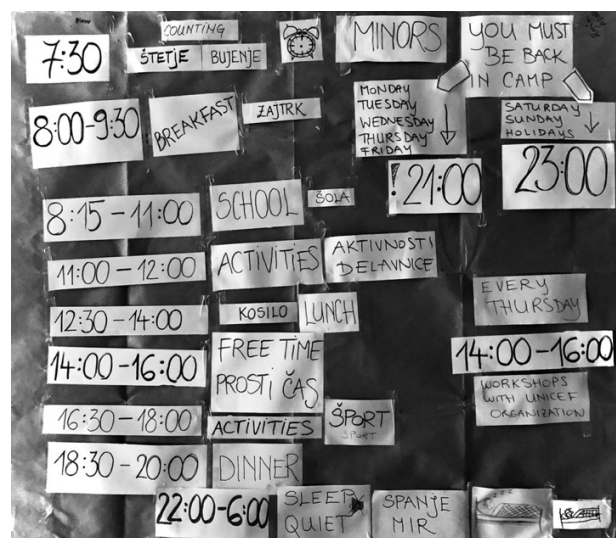 7:30
COUNTING
ŠTETJE
BUJENJE
8:00-9:30
BREAKFAST
ZAJTRK
8:15-11:00
SCHOOL
ŠOLA
11:00-12:00
ACTIVITIES
AKTIVNOSTI
DELAVNICE
12:30-14:00
KOSILO
LUNCH
14:00-16:00
FREE TIME
PROSTI ČAS
16:30-18:00
ACTIVITIES
ŠPORT
SPORT
18:30-20:00
DINNER
22:00-6:00
SLEEP
QUIET
SPANJE
MIR
MINORS
YOU MUST
BE BACK
IN CAMP
MONDAY
TUESDAY
WEDNESDAY
THURSDAY
FRIDAY
! 21:00
SATURDAY
SUNDAY
HOLIDAYS
23:00
EVERY
THURSDAY
14:00-16:00
WORKSHOPS
WITH UNICEF
ORGANIZATION